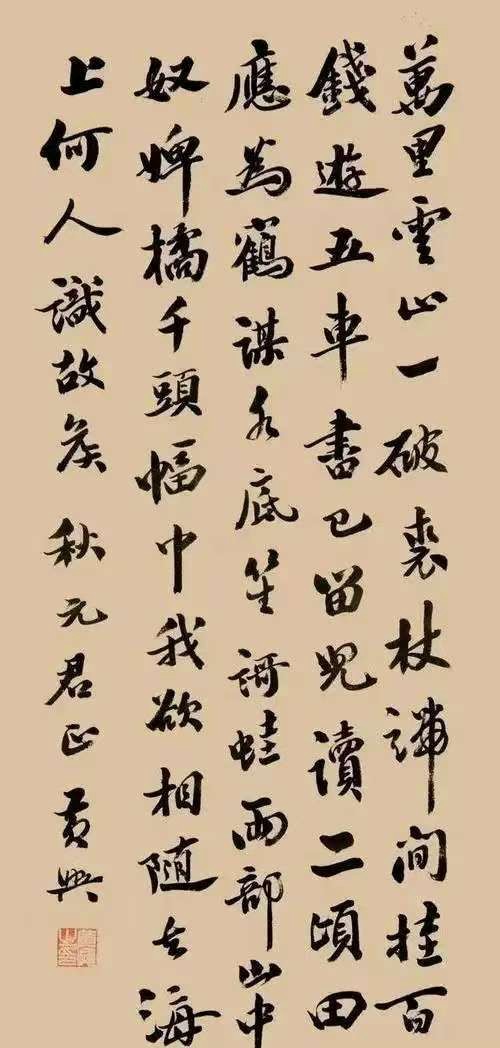 萬里雲山一破裘杖端閒挂百
錢遊五車書已留兒讀二頃田
應為鶴謀水底笙謌蛙兩部山中
奴婢橘千頭幅巾我欲相隨去海
上何人識故侯 秋元君正 黃興